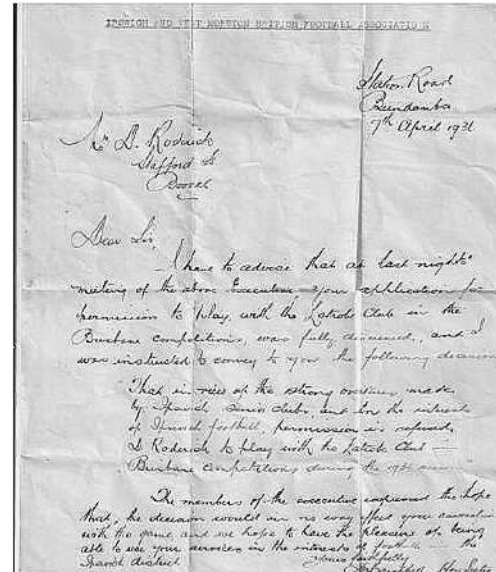 IPSWICH AND WEST MORETON BRITISH FOOTBALL ASSOCIATION
Station Road
Bundamba
7th April 1931
Mr D. Roderick
Stafford St
Booval
Dear Sir,
I have to advise that at last nights'
meeting of the above Executive your application for
permission to play, with the Latrobe Club in the
Brisbane competitions, was fully discussed, and I
was instructed to convey to you the following decision
That in view of the strong overtures made
by Ipswich Senior clubs, and in the interests
of Ipswich football, permission is refused
D Roderick to play with the Latrobe Club in
Brisbane Competitions during the season
The members of the executive expressed the hope
that, the decision would in no way effect your association
with the game, and we hope to have the pleasure of being
able to use your services in the interests of football in the
Ipswich district
Yours faithfully
Hon Secty